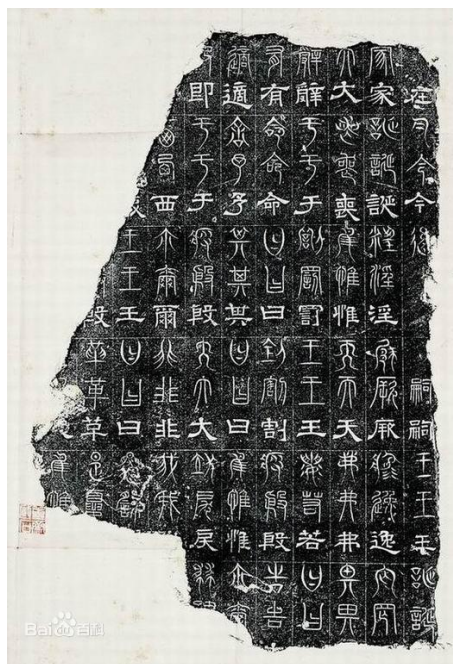 在今今今後嗣嗣王王王誕誕
家家誕誕誕淫淫淫厥厥厥逸逸逸罔罔
大大喪喪喪惟惟惟天天天弗弗弗畀畀
辭辭于于于罰罰罰王王王若若若曰曰
有有命命命曰曰曰割割割殷殷殷告告
適適予予予其其其曰曰曰惟惟惟爾爾
即于于于殷殷殷大大大戾戾戾肆
西爾爾爾非非非我我
王王王曰曰曰
殷革革革是
惟惟
Baidu百科